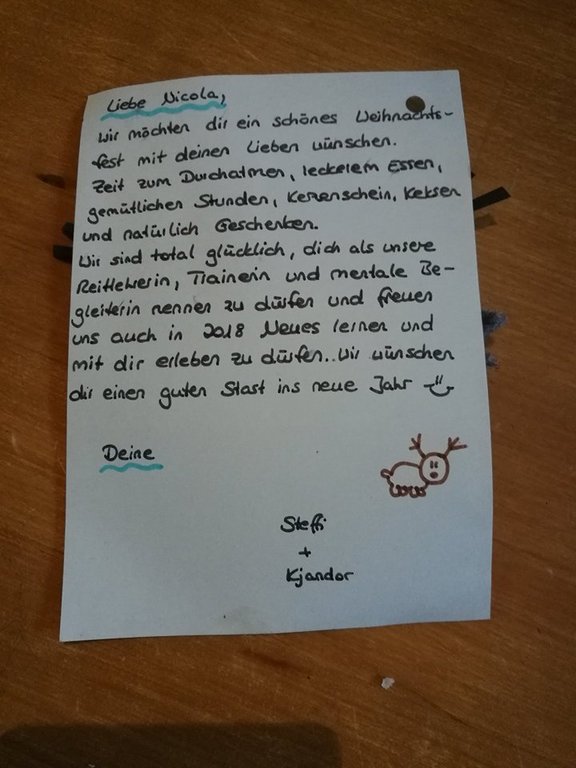 Liebe Nicola,
Wir möchten dir ein schönes Weihnachts-
fest mit deinen Lieben wünschen.
Zeit zum Durchatmen, leckerem Essen,
gemütlichen Stunden, Kerzenschein, Keksen
und natürlich Geschenken.
Wir sind total glücklich, dich als unsere
Reitlehrerin, Trainerin und mentale Be-
gleiterin nennen zu dürfen und freuen
uns auch in 2018 Neues lernen und
mit dir erleben zu dürfen.. Wir wünschen
dir einen guten Start ins neue Jahr
Deine
Steffi
+
Kjandor